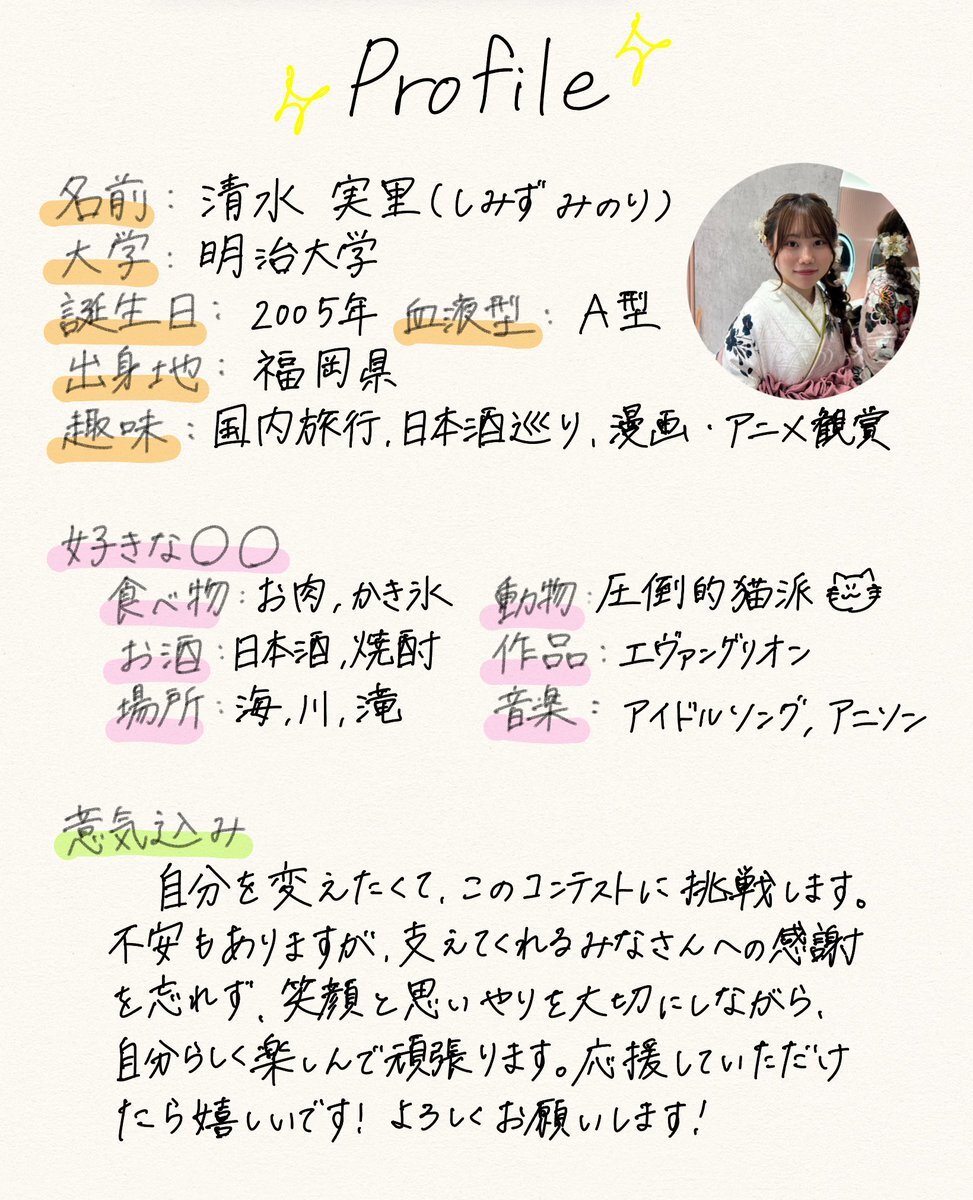 Profile
名前：清水 実里(しみず みのり)
大学：明治大学
誕生日：2005年 血液型：A型
出身地：福岡県
趣味：国内旅行、日本酒巡り、漫画・アニメ観賞
好きな〇〇
食べ物：お肉、かき氷 動物：圧倒的猫派
お酒：日本酒、焼酎 作品：エヴァングリオン
場所：海、川、滝 音楽：アイドルソング、アニソン
意気込み
自分を変えたくて、このコンテストに挑戦します。
不安もありますが、支えてくれるみなさんへの感謝
を忘れず、笑顔と思いやりを大切にしながら、
自分らしく楽しんで頑張ります。応援していただけ
たら嬉しいです！よろしくお願いします！